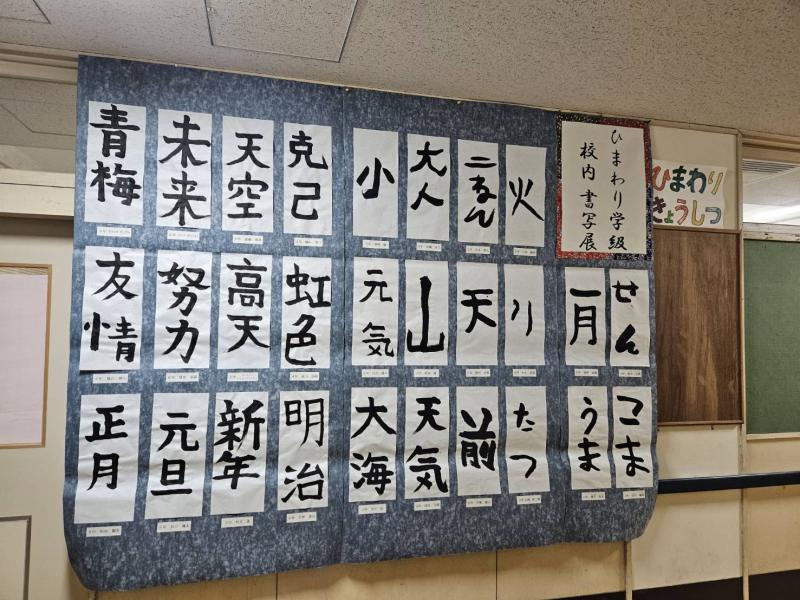 ひまわり
きょうしつ
ひまわり学級
校内書写展
火
二ねん
大人
小
克己
天空
未来
青梅
せん
一月
川
天
山
元気
虹色
高天
努力
友情
こま
うま
たつ
前
天気
大海
明治
新年
元旦
正月